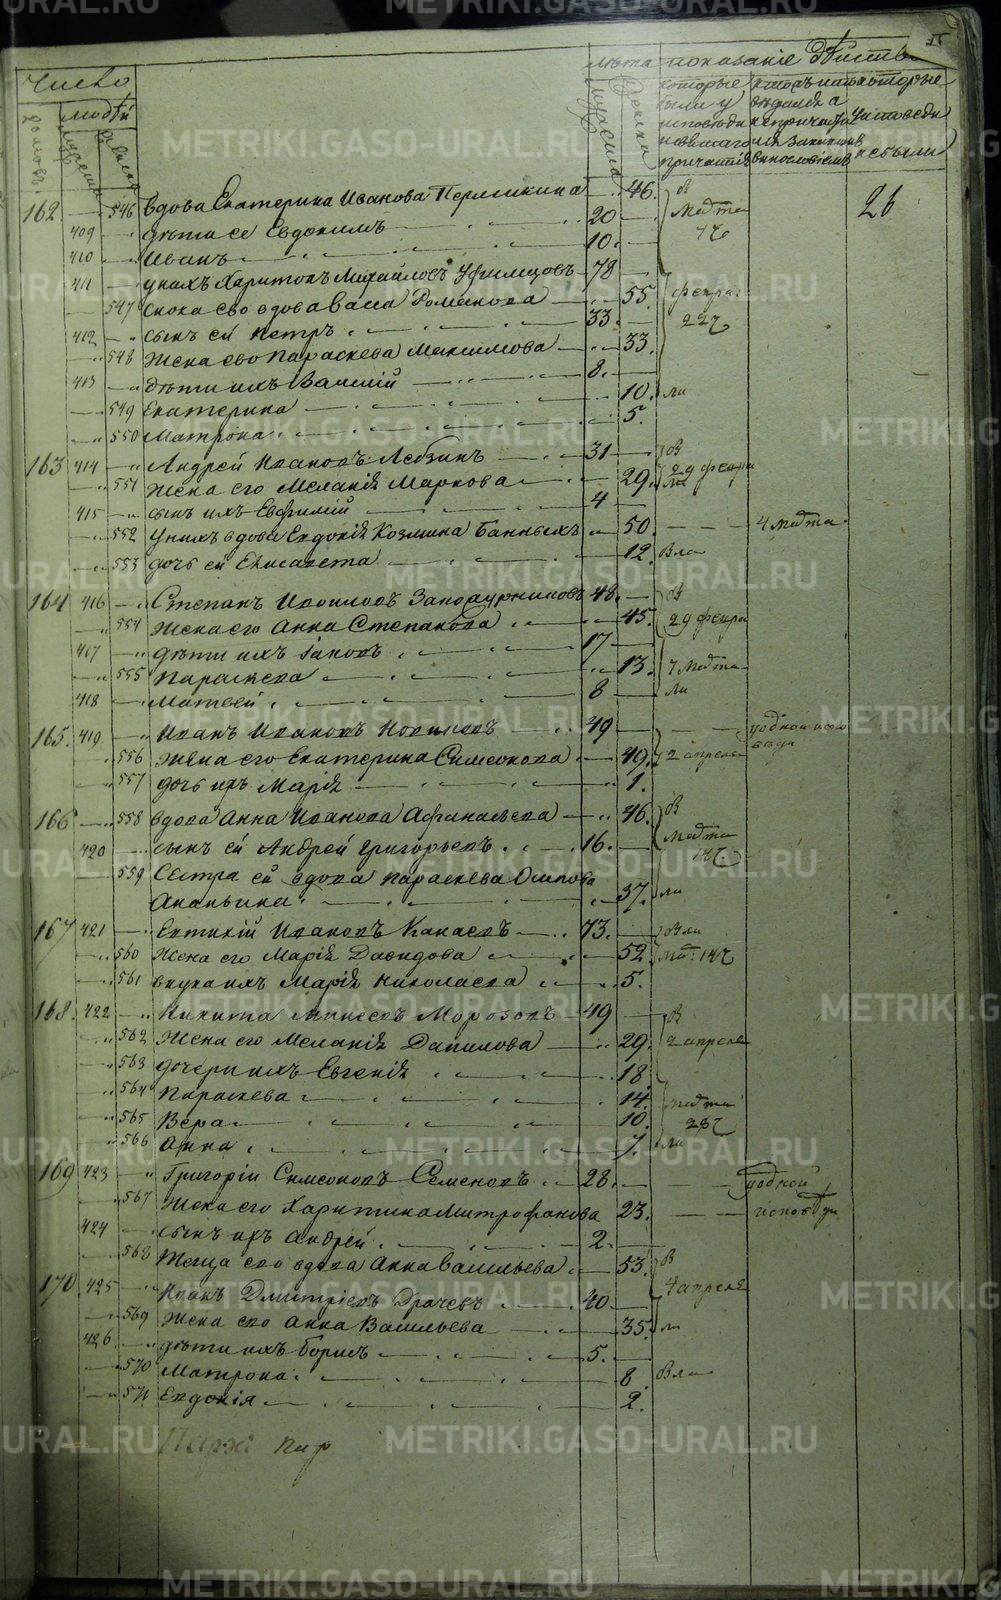 Число
людей
лѣта показаніе дѣйств
которые
были у
исповѣди
и святаго
причастія
исповѣди
не были
162 546 вдова Екатерина Иванова Перминкина 46. В
409 дѣти ее Евдокимъ 20 Марта
410 Иванъ 10.
411 у нихъ Харитонъ Михайловъ Уфимцовъ 78
547 сноха ево вдова Васса Романова 55. февра
412 сынъ ей Петръ 33
548 жена ево Параскева Максимова 33.
413 дѣти ихъ Василій 8.
549 Екатерина 10. ли
550 Матрона 5.
163 414 Андрей Ивановъ Лебзинъ 31 В
551 жена его Меланія Маркова 29. 29 февра
415 сынъ ихъ Евфимій 4
552 у нихъ вдова Евдокія Козмина Банныхъ 50. 4 марта
553 дочь ей Елисавета 12. Вли
164 416 Степанъ 48. В
554 жена его Анна Степанова 45. 29 февра
417 дѣти ихъ Іаковъ 17
555 Параскева 13. 7 марта
418 Матвей 8 ли
165. 419 Иванъ Ивановъ 49 у одной испо
556 жена его Екатерина Симеонова 49. 2 апреля
557 дочь ихъ Марія 1.
166 558 вдова Анна Иванова Афанасьева 46. В
420 сынъ ей Андрей Григорьевъ 16. Марта
559 Сестра ей вдова Параскева Осипова
Ананьина 37. ли
167 421 Евтихій Ивановъ Канаевъ 73. Вли
560 жена его Марія Давидова 52
561 внука ихъ Марія Николаева 5.
168. 422 Никита Моисеевъ Морозовъ 49 В
562 жена его Меланія Данилова 29. 2 апреля
563 дочери ихъ Евгенія 18.
564 Параскева 14. марта
565 Вера 10.
566 Анна 7. ли
169 423 Григорій Симеоновъ Семеновъ 28. у одной
567 жена его Харитина Митрофанова 23. исповѣди
424 сынъ ихъ Андрей 2.
568 теща ево вдова Анна Васильева 53. В
170. 425 Иванъ Дмитріевъ Драчевъ 40 4 апреля
569 жена ево Анна Васильева 35. ли
426. дѣти ихъ Борисъ 5.
570 Матрона 8 Вли
571 Евдокія 2.
26
METRIKI.GASO-URAL.RU